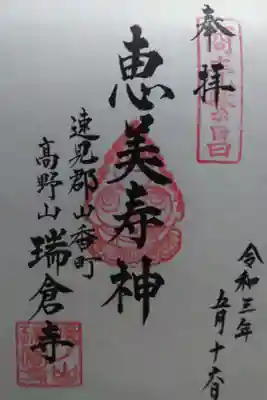 奉拝
商売繁昌
恵美寿神
速見郡山香町
高野山
瑞倉寺
令和三年
五月十六日